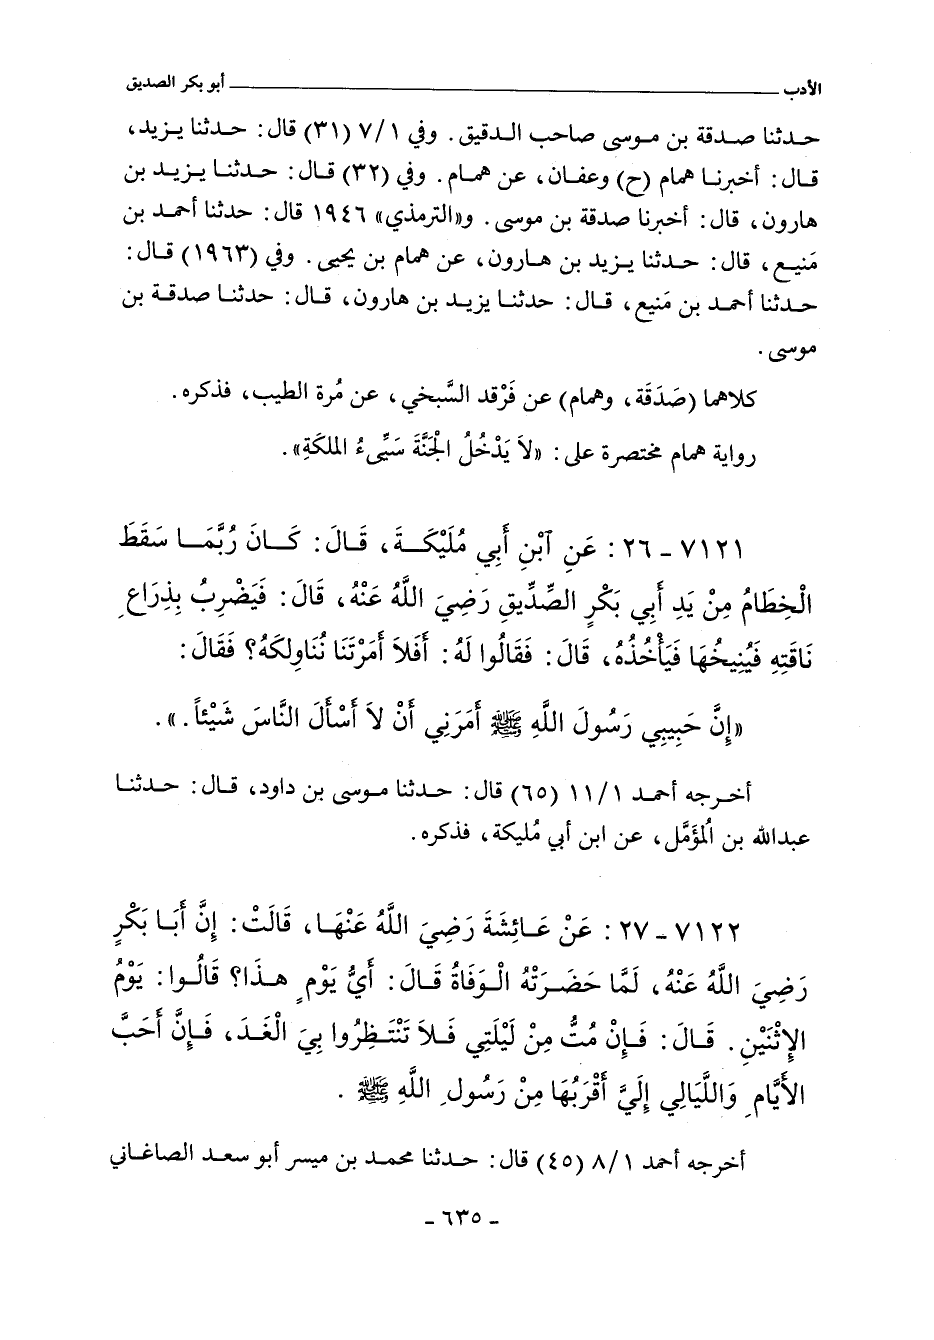 الأدب ــــــــــــــــــــــــــــــــــــــــ أبو بكر الصديق
حدثنا صدقة بن موسى صاحب الدقيق. وفي ٧/١ (٣١) قال: حدثنا يزيد،
قال: أخبرنا همام (ح) وعفان، عن همام. وفي (٣٢) قال: حدثنا يزيد بن
هارون، قال: أخبرنا صدقة بن موسى. و«الترمذي» ١٩٤٦ قال: حدثنا أحمد بن
مَنيع، قال: حدثنا يزيد بن هارون، عن همام بن يحيى. وفي (١٩٦٣) قال:
حدثنا أحمد بن مَنيع، قال: حدثنا يزيد بن هارون، قال: حدثنا صدقة بن
موسى.
كلاهما (صَدَقَة، وهمام) عن فَرْقد السَّبخي، عن مُرة الطيب، فذكره.
رواية همام مختصرة على: «لاَ يَدْخُلُ الْجَنَّةَ سَيِّىءُ الملكَةِ».
٧١٢١ - ٢٦: عَنِ آبْنِ أَبِي مُلَيْكَةَ، قَالَ: كَانَ رُبَّمَا سَقَطَ
الْخِطَامُ مِنْ يَدِ أَبِي بَكْرٍ الصِّدِّيقِ رَضِيَ اللَّهُ عَنْهُ، قَالَ: فَيَضْرِبُ بِذِرَاعِ
نَاقَتِهِ فَيُنِيخُهَا فَيَأْخُذُهُ، قَالَ: فَقَالُوا لَهُ: أَفَلاَ أَمَرْتَنَا نُنَاوِلكَهُ؟ فَقَالَ:
«إِنَّ حَبِيبِي رَسُولَ اللَّهِ ﷺ أَمَرَنِي أَنْ لاَ أَسْأَلَ النَّاسَ شَيْئاً.».
أخرجه أحمد ١١/١ (٦٥) قال: حدثنا موسى بن داود، قال: حدثنا
عبدالله بن الْمُؤَمَّل، عن ابن أبي مُليكة، فذكره.
٧١٢٢ - ٢٧: عَنْ عَائِشَةَ رَضِيَ اللَّهُ عَنْهَا، قَالَتْ: إِنَّ أَبَا بَكْرٍ
رَضِيَ اللَّهُ عَنْهُ، لَمَّا حَضَرَتْهُ الْوَفَاةُ قَالَ: أَيُّ يَوْمٍ هذَا؟ قَالُوا: يَوْمُ
الإِثْنَيْنِ. قَالَ: فَإِنْ مُتُّ مِنْ لَيْلَتِي فَلاَ تَنْتَظِرُوا بِيَ الْغَدَ، فَإِنَّ أَحَبَّ
الأَيَّامِ وَاللَّيَالِي إِلَيَّ أَقْرَبُهَا مِنْ رَسُولِ اللَّهِ ﷺ.
أخرجه أحمد ٨/١ (٤٥) قال: حدثنا محمد بن ميسر أبو سعد الصاغاني
- ٦٣٥ -